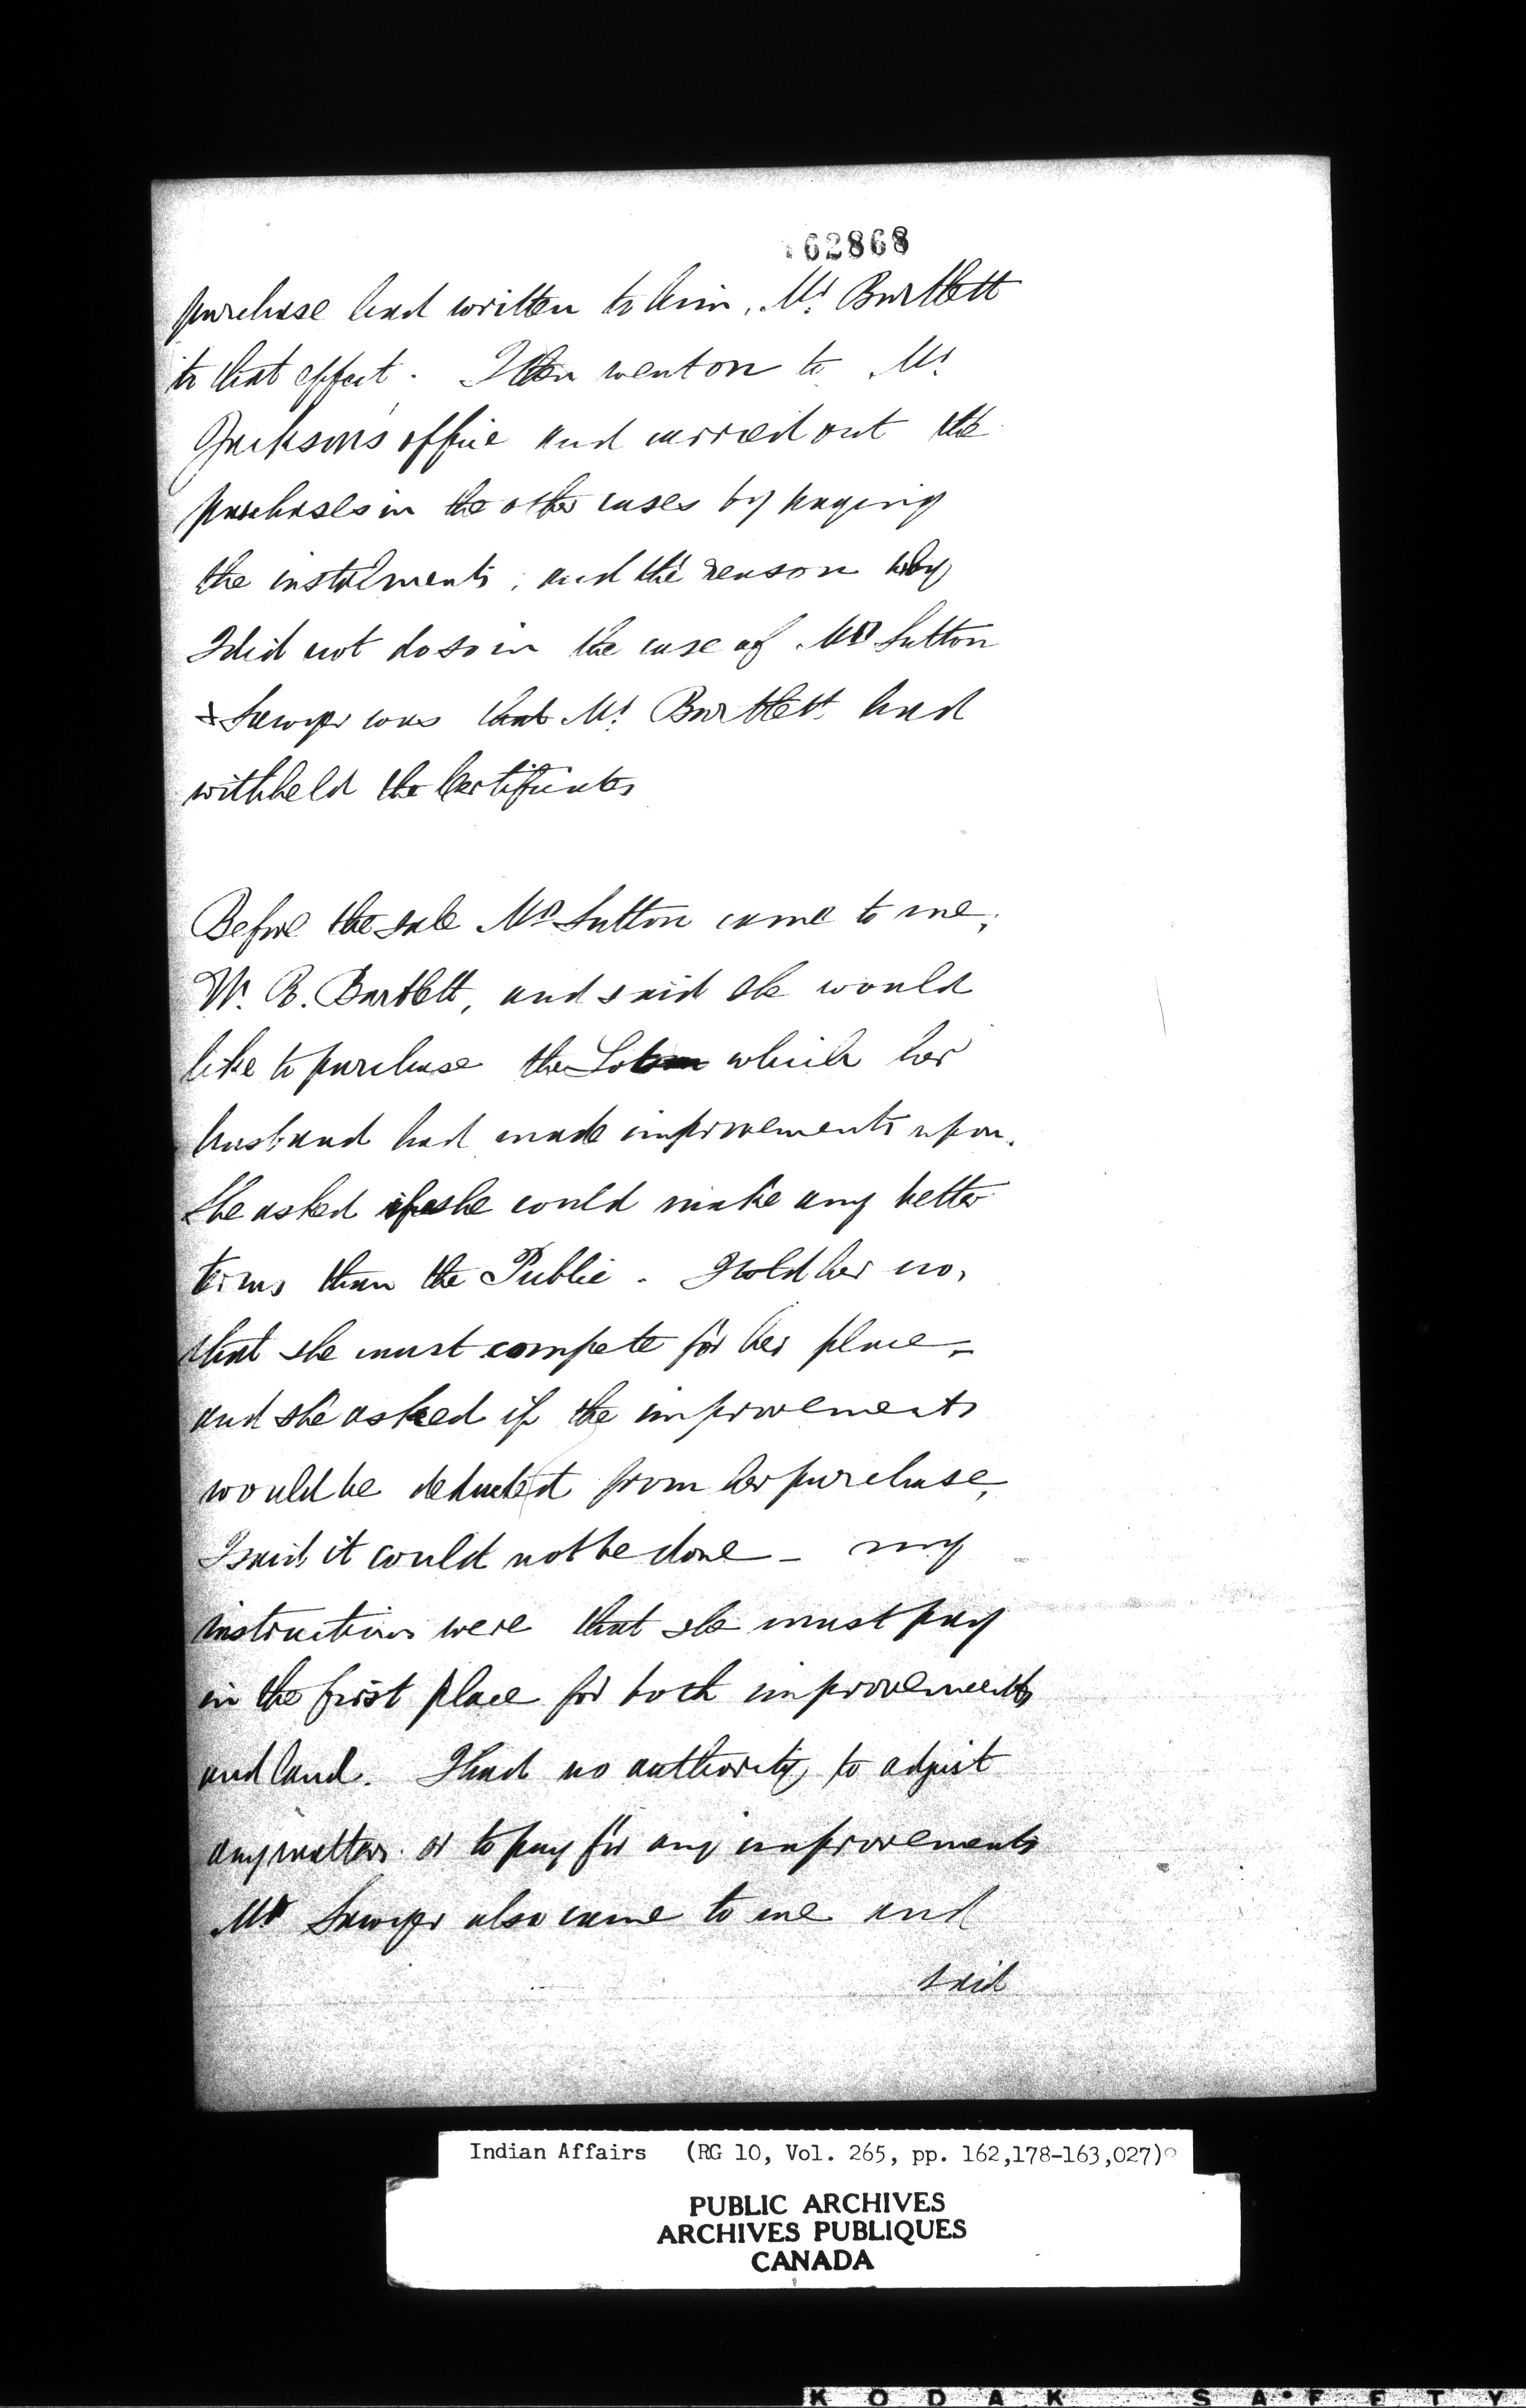 162868
purchase had written to him, Mr. Bartlett
to that effect. I then went on to Mr.
Jackson's office and carried out the
purchases in the other cases by paying
the instalments, and the reason why
I did not do so in the case of Mrs Sutton
& Sawyer was that Mr. Bartlett had
withheld the Certificates
Before the sale Mrs Sutton came to me,
W. R. Bartlett, and said she would
like to purchase the Lot which her
husband had made improvements upon.
She asked if she could make any better
terms than the Public. I told her no,
that she must compete for her place,
and she asked if the improvements
would be deducted from her purchase,
I said it could not be done - my
instructions were that she must pay
in the first place for both improvements
and land. I had no authority to adjust
any matters or to pay for any improvements
Mr Sawyer also came to me and
said
Indian Affairs (RG 10, Vol. 265, pp. 162,178-163,027)
PUBLIC ARCHIVES
ARCHIVES PUBLIQUES
CANADA
KODAK SAFETY